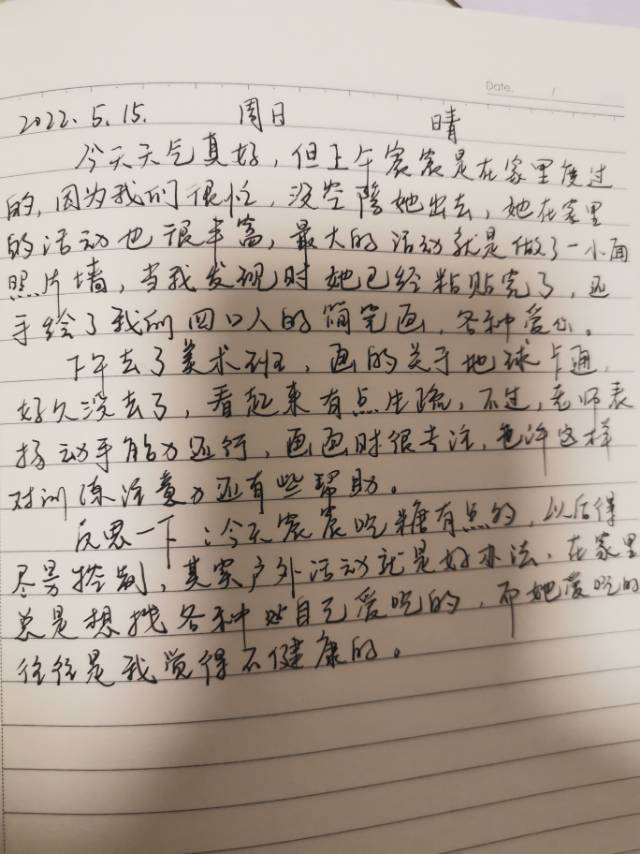 Date. /
2022.5.15. 周日 晴
今天天气真好,但上午宸宸是在家里度过
的,因为我们很忙,没空陪她出去,她在家里
的活动也很丰富,最大的活动就是做了一小面
照片墙,当我发现时她已经粘贴完了,还
手绘了我们四口人的简笔画,各种爱心。
下午去了美术班,画的关于地球卡通,
好久没去了,看起来有点生疏,不过,老师表
扬动手能力还行,画画时很专注,也许这样
对训练注意力还有些帮助。
反思一下:今天宸宸吃糖有点的,以后得
尽量控制,其实户外活动就是好办法,在家里
总是想找各种她自己爱吃的,而她爱吃的
往往是我觉得不健康的。